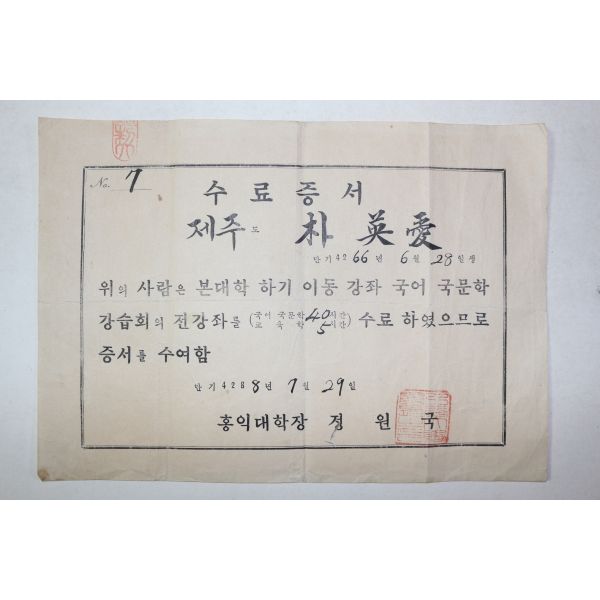 No. 7
수료증서
제주도 朴英愛
단기4266년 6월 28일생
위의 사람은 본대학 하기 이동 강좌 국어 국문학
강습회의 전강좌를 (국어 국문학 40시간 교육학 5시간) 수료 하였으므로
증서를 수여함
단기4288년 7월 29일
홍익대학장 정원국